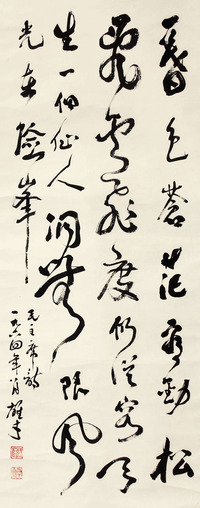 暮色蒼茫看勁松
亂雲飛度仍從容天
生一個仙人洞無限風
光在險峯
毛主席詩
一九六四年月雄才